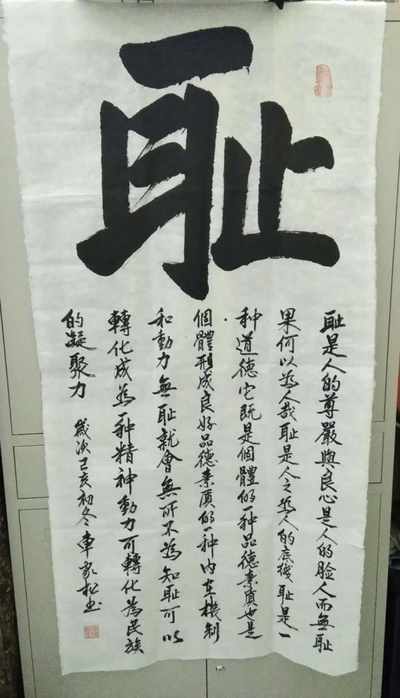 耻
耻是人的尊嚴與良心是人的脸人而無耻
果何以爲人哉耻是人之爲人的底綫耻是一
种道德它既是個體的一种品德素質也是
個體形成良好品德素質的一种内在機制
和動力無耻就會無所不爲知耻可以
轉化成爲一种精神動力可轉化為民族
的凝聚力
歲次己亥初冬車家松书